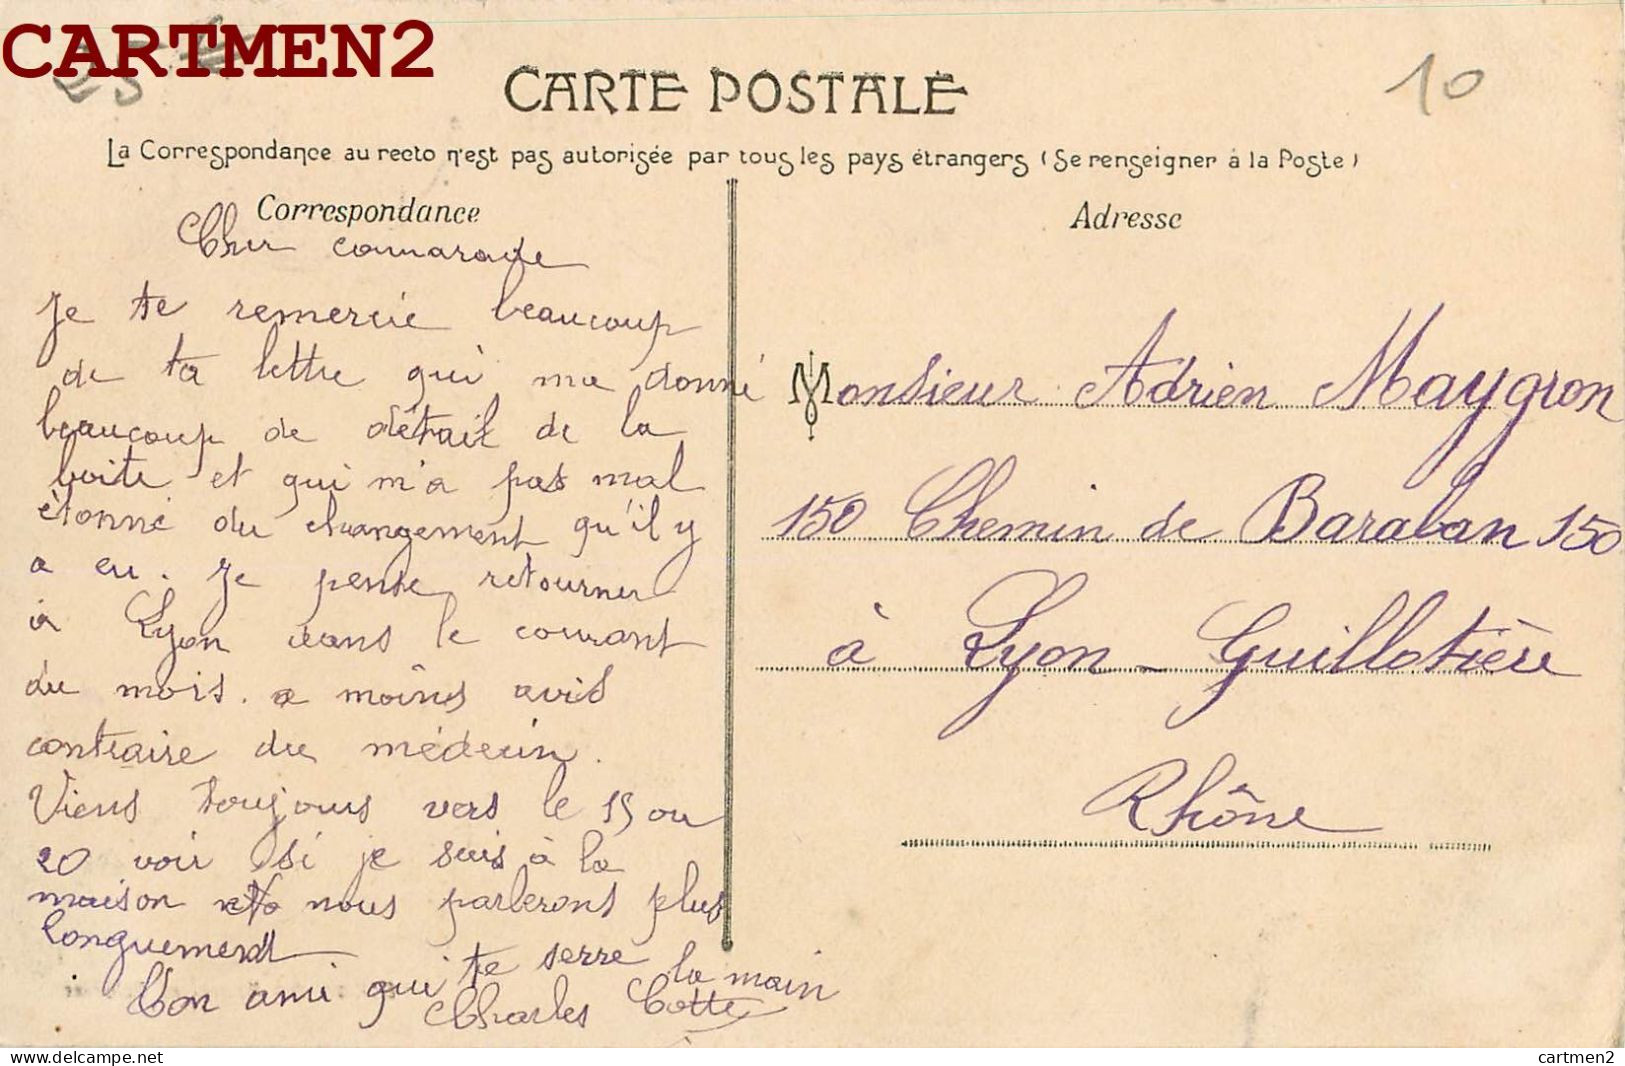 CARTMEN2
25
10
CARTE POSTALE
La Correspondance au recto n'est pas autorisée par tous les pays étrangers (Se renseigner à la Poste)
Correspondance
Cher camarade
Je te remercie beaucoup
de ta lettre qui ma donné
beaucoup de détail de la
boite et qui m'a pas mal
étonné du changement qu'il y
a eu. Je pense retourner
à Lyon dans le courant
du mois. a moins avis
contraire du médecin.
Viens toujours vers le 15 ou
20 voir si je suis à la
maison nous parlerons plus
longuement
Ton ami qui te serre la main
Charles Cotte
Adresse
Monsieur Adrien Maygron
150 Chemin de Baraban 150
à Lyon-Guillotière
Rhône
delcampe.net
cartmen2